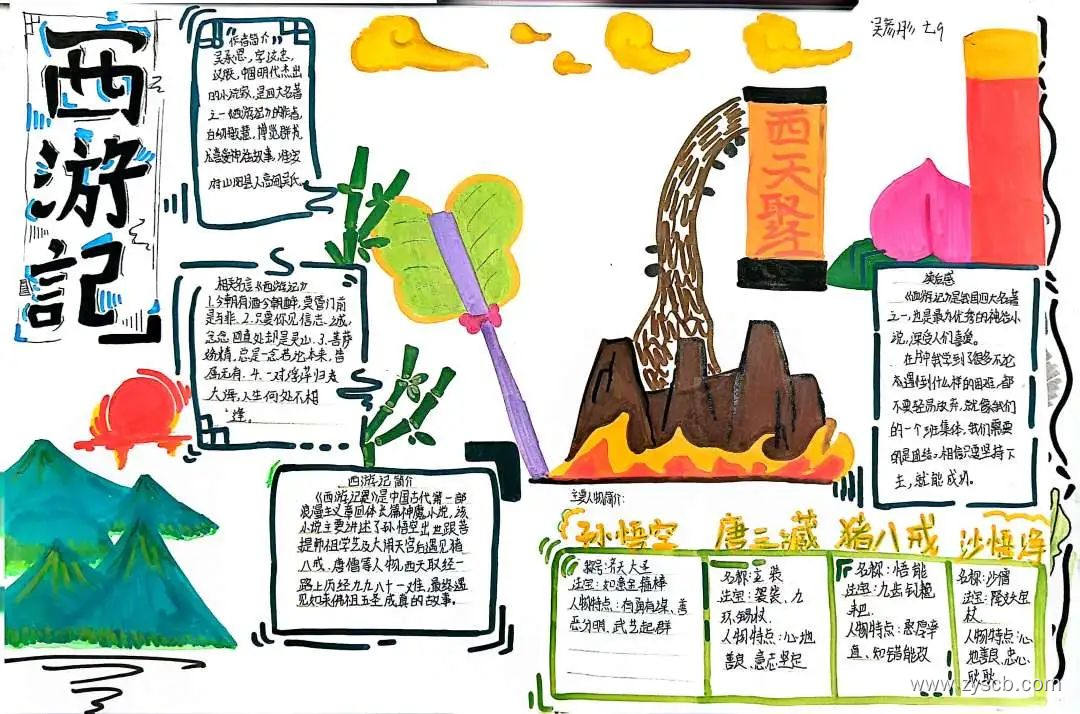 西游記
作者简介
吴承恩,字汝忠,
汉族,中国明代杰出
的小说家,是四大名著
之一《西游记》的作者,
自幼敏慧,博览群书
尤喜爱神话故事,淮安
府山阳县人
相关名言《西游记》
1.今朝有酒今朝醉,莫管门前
是与非.2.只要你见信志诚,
念念回首处却是灵山.3.菩萨
妖精,总是一念,若论本来,皆
属无有.4.一对浮萍归老
大海,人生何处不相
逢.
西游记简介
《西游记》是中国古代第一部
浪漫主义章回体长篇神魔小说,该
小说主要讲述了孙悟空出世跟菩
提师祖学艺及大闹天宫后遇见猪
八戒、唐僧等人物,西天取经一
路上历经九九八十一难,最终遇
见如来佛祖五圣成真的故事。
西天取经
吴彦彤 七9
读后感
《西游记》是我国四大名著
之一,也是最为优秀的神话小
说,深受人们喜爱。
在书中我学到了很多不论
在遇到什么样的困难,都
不要轻易放弃,就像我们
的一个班集体,我们需要
的是团结,相信只要坚持下
去,就能成功。
主要人物简介:
孙悟空 唐三藏 猪八戒 沙悟净
称号:齐天大圣
法宝:如意金箍棒
人物特点:有勇有谋、善
恶分明、武艺超群
名称:玄奘
法宝:袈裟、九
环锡杖
人物特点:心地
善良、意志坚定
名称:悟能
法宝:九齿钉耙
人物特点:憨厚率
直、知错能改
名称:沙僧
法宝:降妖宝
杖
人物特点:心
地善良、忠心
耿耿
www.zyscb.com